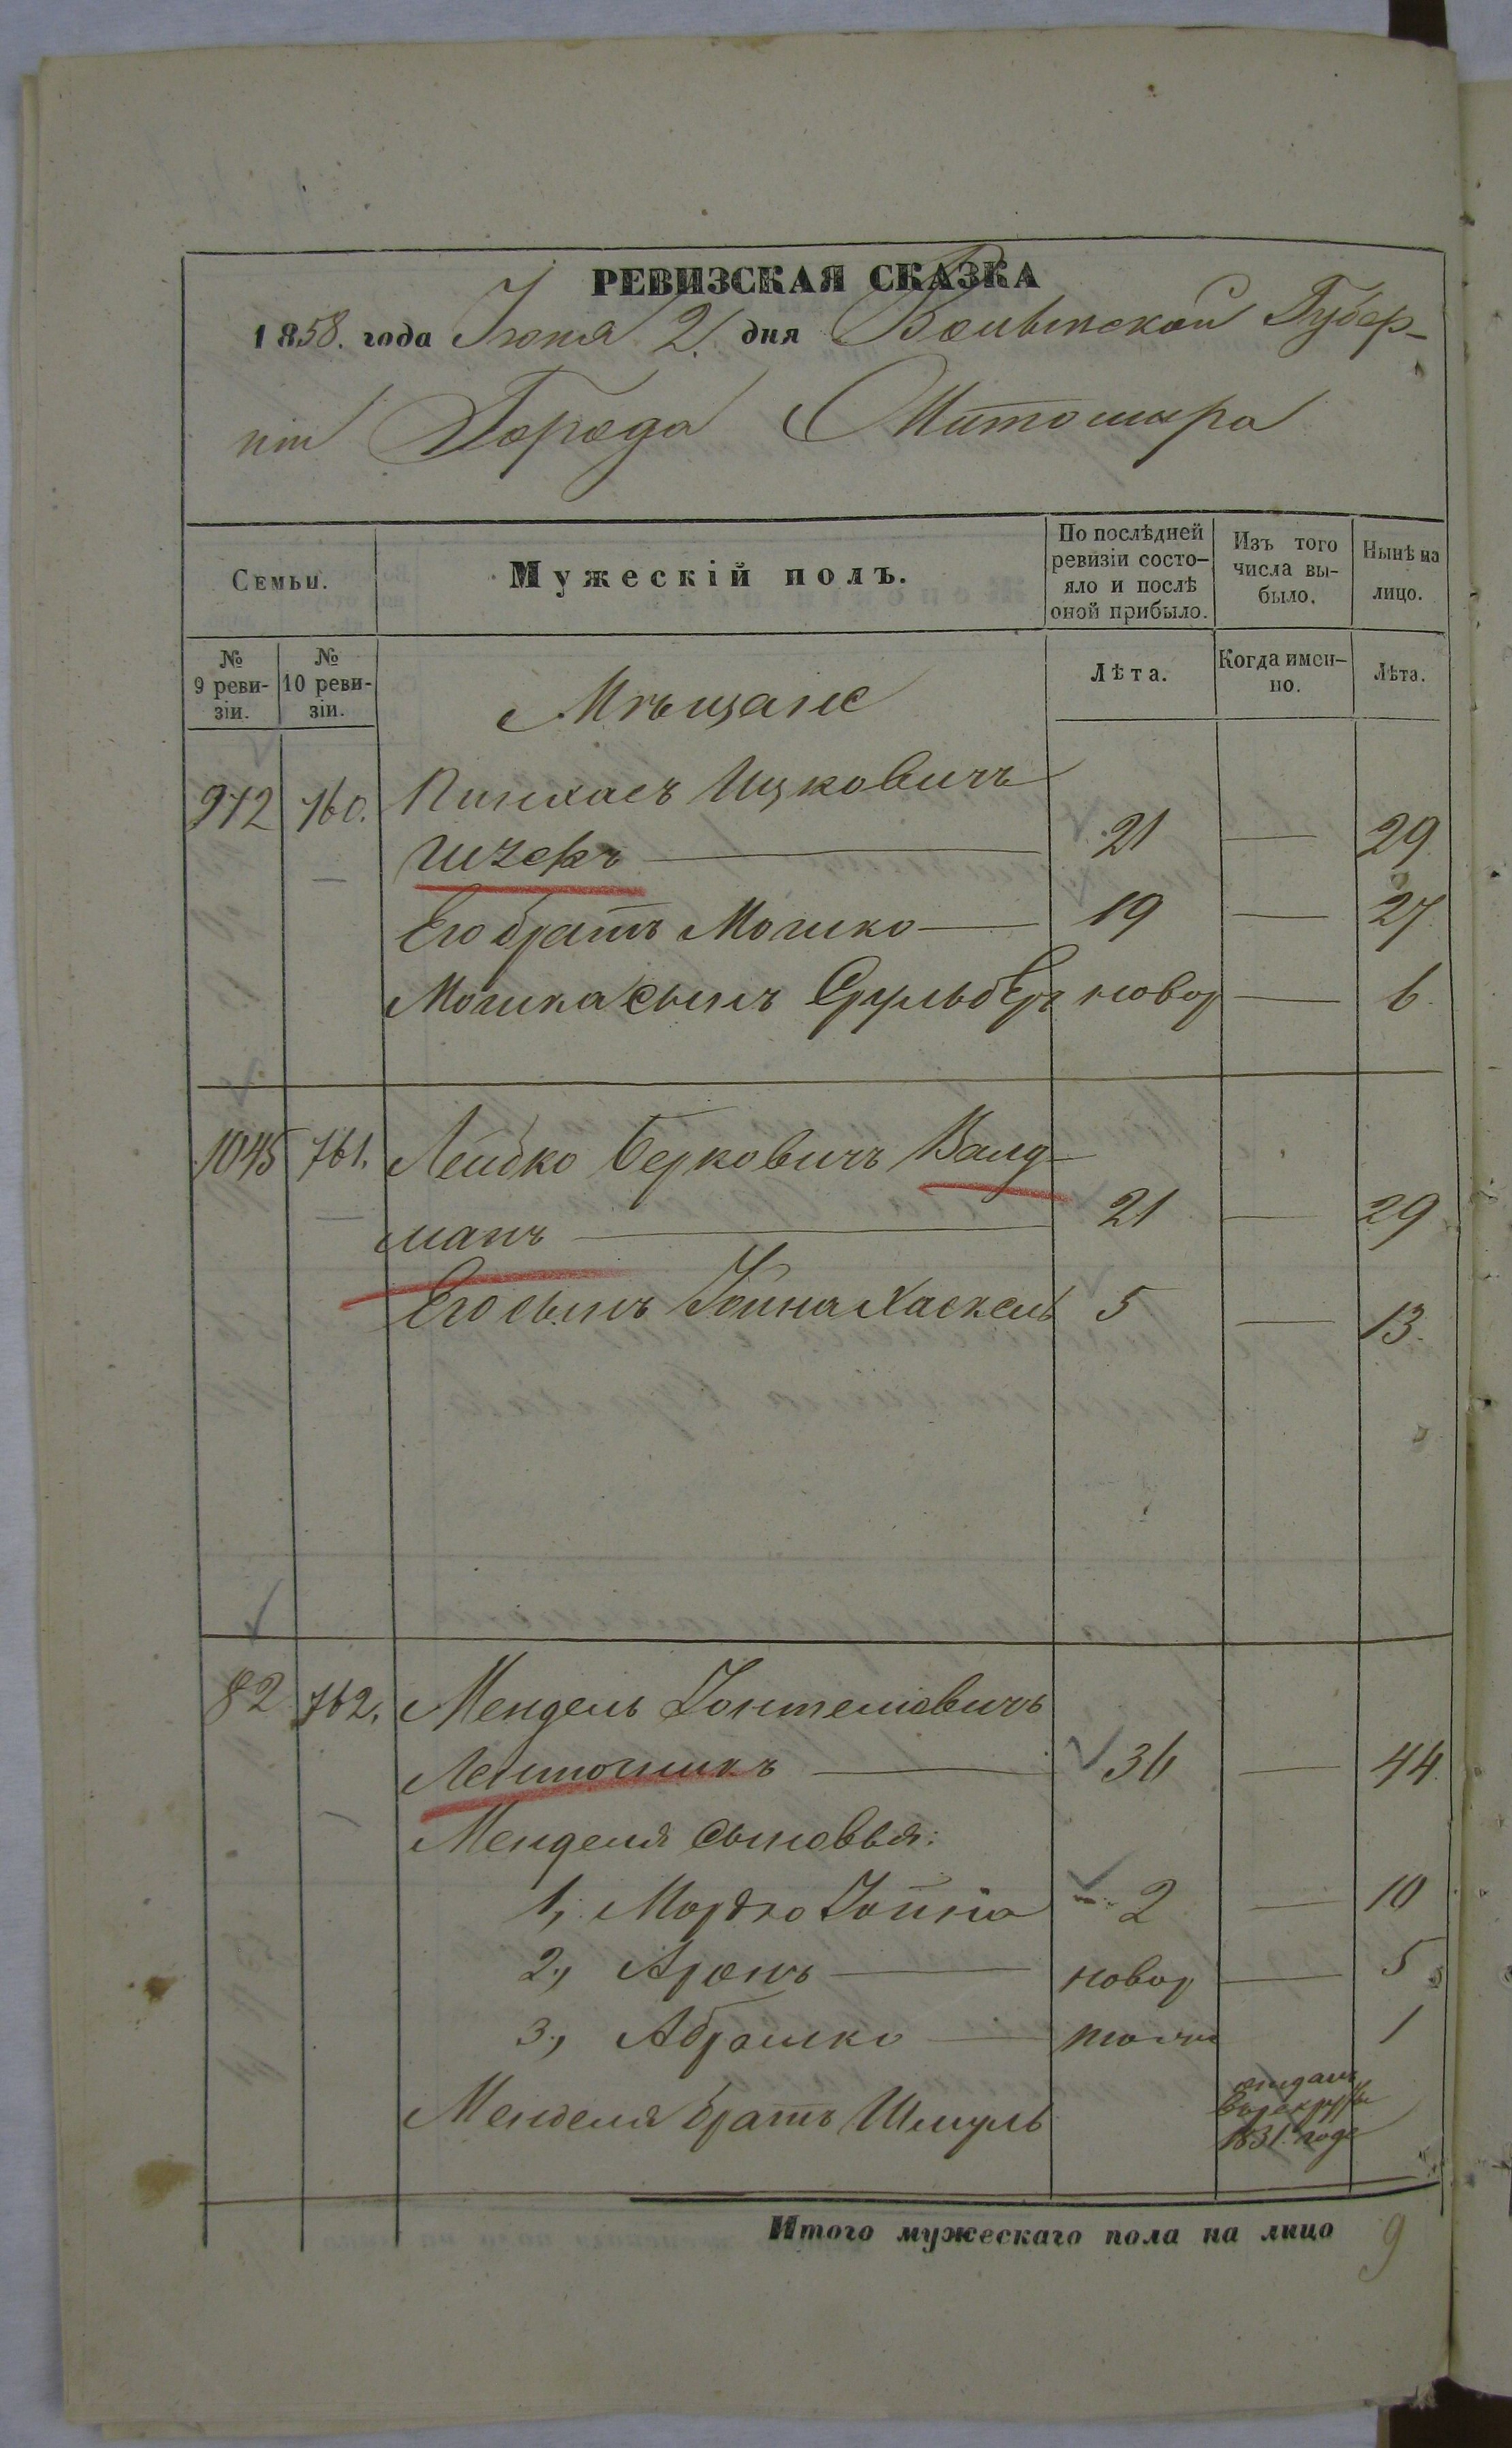 РЕВИЗСКАЯ СКАЗКА
1858. года Іюня 2. дня Волынской Губер-
ніи Города Житомира
Семьи.
Мужескій полъ.
По послѣдней ревизіи состо-яло и послѣ оной прибыло.
Изъ того числа вы-было.
Нынѣ на лицо.
№ 9 реви-зіи.
№ 10 реви-зіи.
Мѣщане
Лѣта.
Когда имен-но.
Лѣта.
972 760. Пинхасъ Ицковичъ
— 21 — 29
Его братъ Мошко — 19 — 27
Мошка сынъ Срульбер новор — 6.
1045 761. Лейбко Берковичъ Валд-
манъ — 21 — 29
Его сынъ Іойна Хаскель 5 — 13.
82 762. Мендель Іонтелювичъ
— 36 — 44.
Менделя сыновья:
1, Мордко Іойна 2 — 10
2., Аронъ — новор — 5
3., Абрамко — тоже 1
Менделя братъ Шмуль отданъ
въ рекруты
1831. годе
Итого мужескаго пола на лицо 9